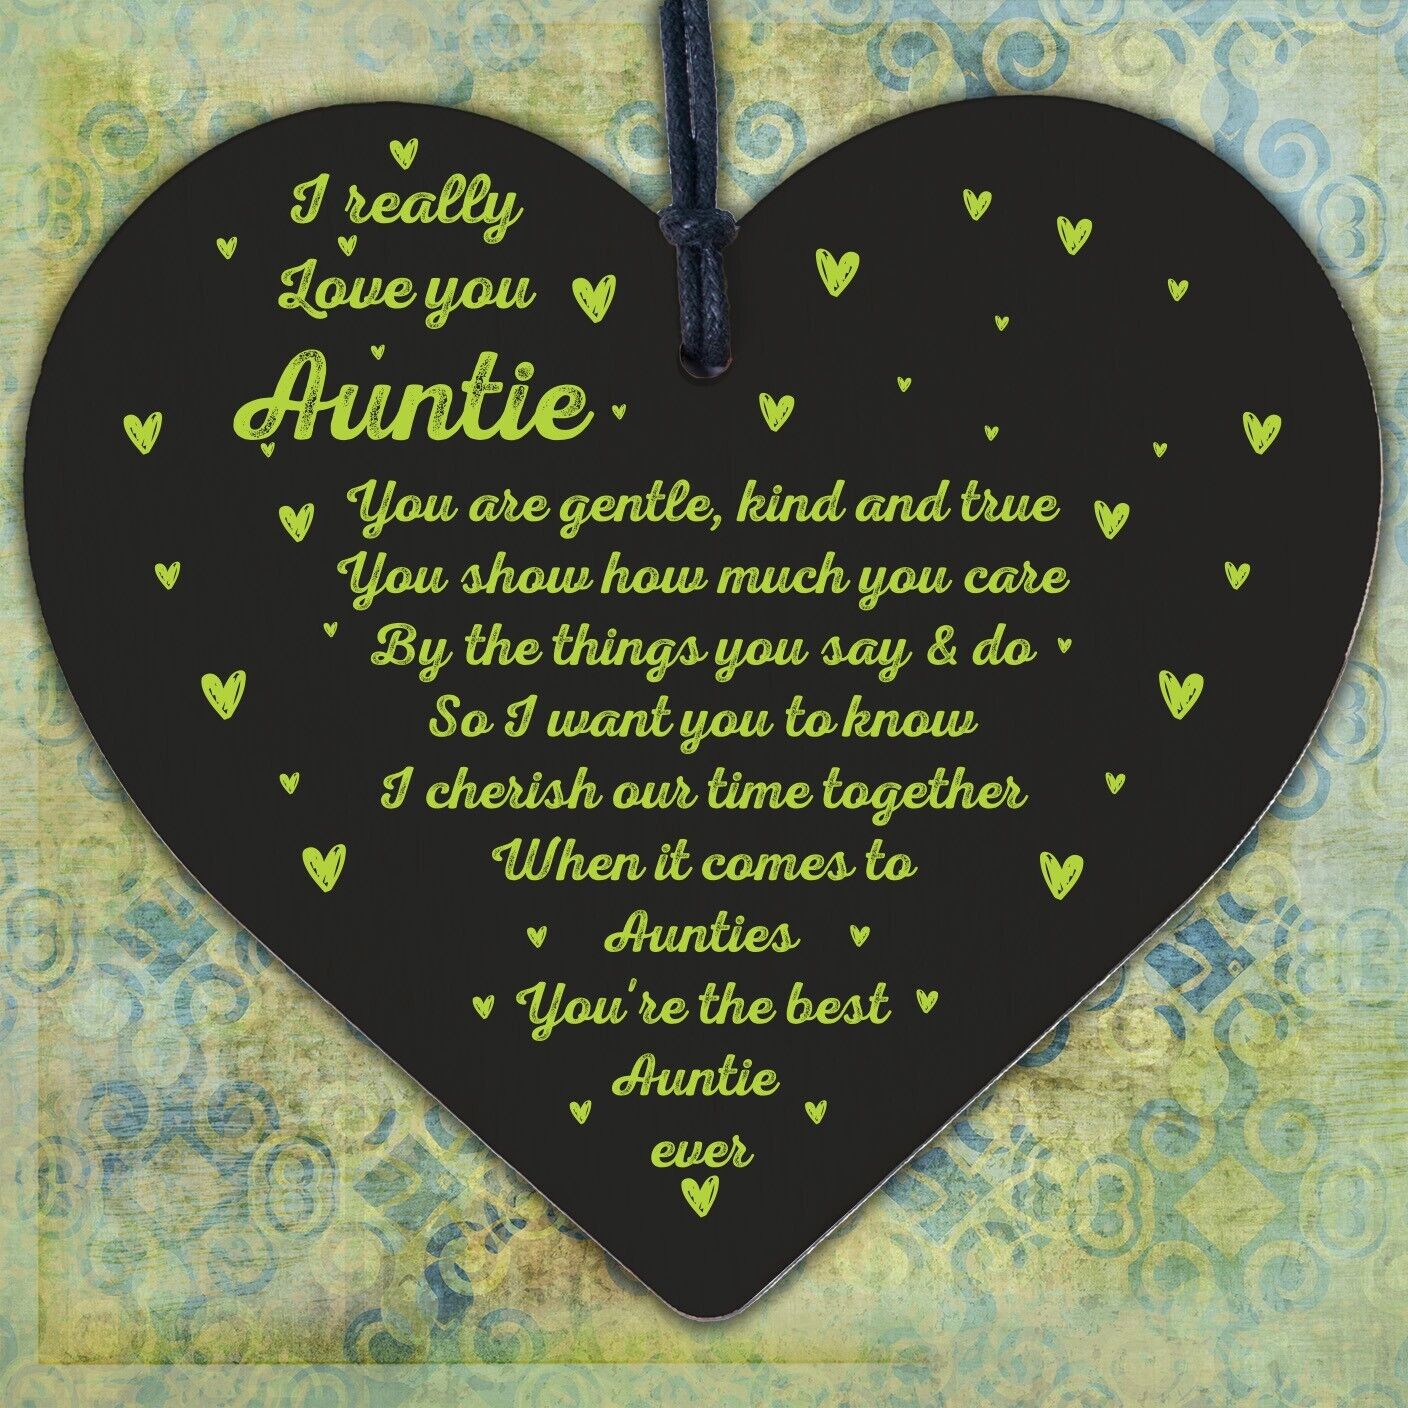 I really
Love you
Auntie
You are gentle, kind and true
You show how much you care
By the things you say & do
So I want you to know
I cherish our time together
When it comes to
Aunties
You're the best
Auntie
ever